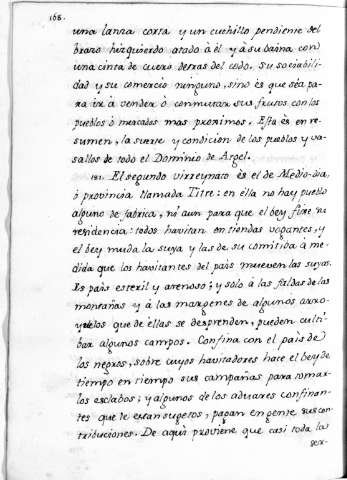 168.
una lanza corta y un cuchillo pendiente del
brazo hizquierdo atado à èl y à su baina con
una cinta de cuero detras del codo. Su sociabili-
dad y su comercio ninguno, sino ès que sèa pa-
ra ir à vender ò conmutar sus frutos con los
pueblos ò mercados mas proximos. Esta ès en re-
sumen, la suerte y condicion de los pueblos y va-
sallos de todo el Dominio de Argel.
El segundo virreynato ès el de Medio-dia,
ò provincia llamada Titre: en ella no hay pueblo
alguno de fabrica, ni aun para que el bey fixe su
residencia: todos havitan en tiendas vogantes, y
el bey muda la suya y las de su comitiba à me-
dida que los havitantes del pais mueven las suyas.
Es pais esteril y arenoso; y solo à las faldas de las
montañas y à las margenes de algunos arro-
yuelos que de ellas se desprenden, pueden culti-
bar algunos campos. Confina con el pais de
los negros, sobre cuyos havitadores hace el bey de
tiempo en tiempo sus campañas para tomar-
los esclabos; y algunos de los aduares confinan-
tes que le estan sugetos, pagan en gente sus con-
tribuciones. De aqui proviene que casi toda la